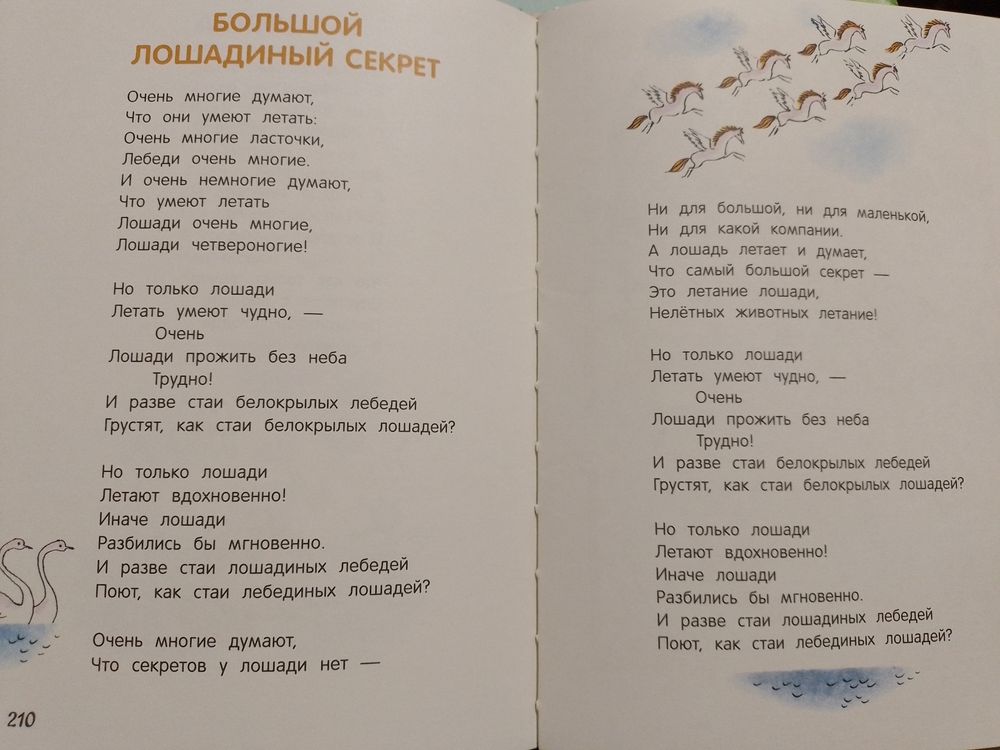 БОЛЬШОЙ
ЛОШАДИНЫЙ СЕКРЕТ
Очень многие думают,
Что они умеют летать:
Очень многие ласточки,
Лебеди очень многие.
И очень немногие думают,
Что умеют летать
Лошади очень многие,
Лошади четвероногие!
Но только лошади
Летать умеют чудно, —
Очень
Лошади прожить без неба
Трудно!
И разве стаи белокрылых лебедей
Грустят, как стаи белокрылых лошадей?
Но только лошади
Летают вдохновенно!
Иначе лошади
Разбились бы мгновенно.
И разве стаи лошадиных лебедей
Поют, как стаи лебединых лошадей?
Очень многие думают,
Что секретов у лошади нет —
210
Ни для большой, ни для маленькой,
Ни для какой компании.
А лошадь летает и думает,
Что самый большой секрет —
Это летание лошади,
Нелётных животных летание!
Но только лошади
Летать умеют чудно, —
Очень
Лошади прожить без неба
Трудно!
И разве стаи белокрылых лебедей
Грустят, как стаи белокрылых лошадей?
Но только лошади
Летают вдохновенно!
Иначе лошади
Разбились бы мгновенно.
И разве стаи лошадиных лебедей
Поют, как стаи лебединых лошадей?